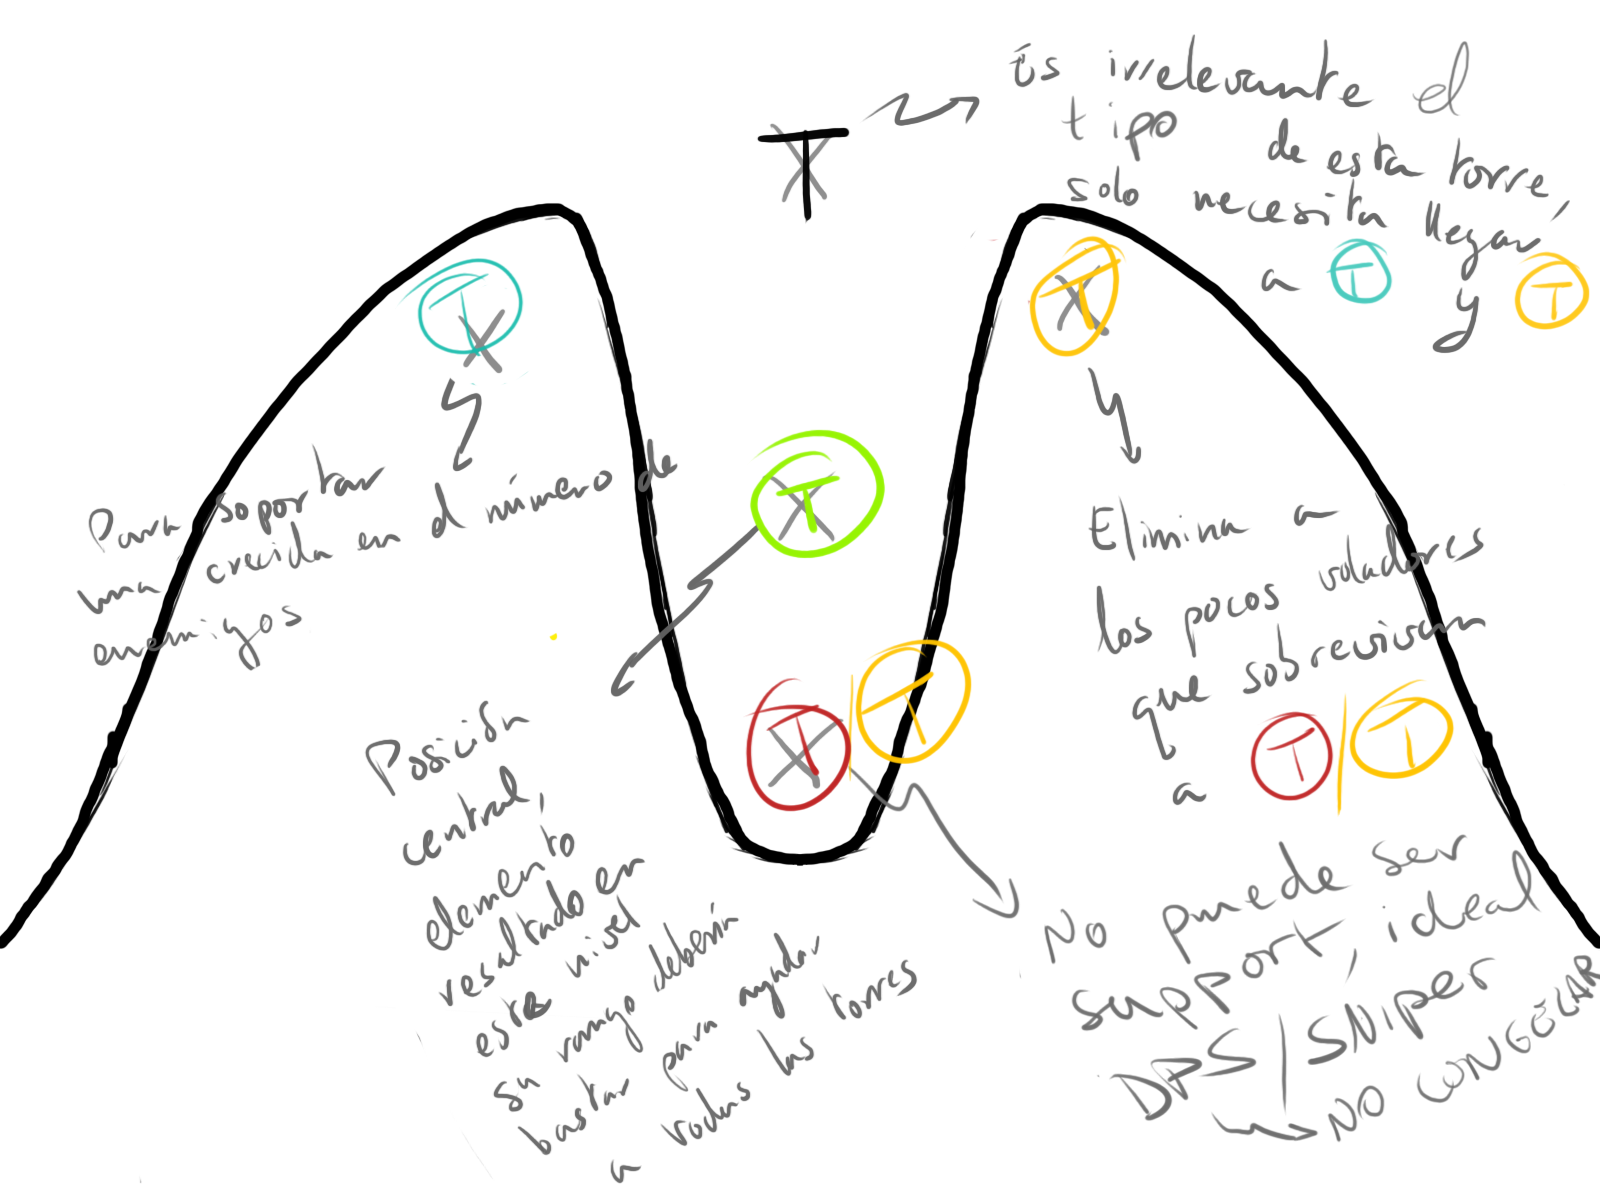 Es irrelevante el
tipo de esta torre,
solo necesita llegar
a T y T
T
T
T
T
T/T
Para soportar
una crecida en el número de
enemigos
Elimina a
los pocos voladores
que sobrevivan
a T/T
Posición
central,
elemento
resaltado en
este nivel
su rango debería
bastar para ayudar
a todas las torres
No puede ser
support, ideal
DPS/SNIPER
NO CONGELAR